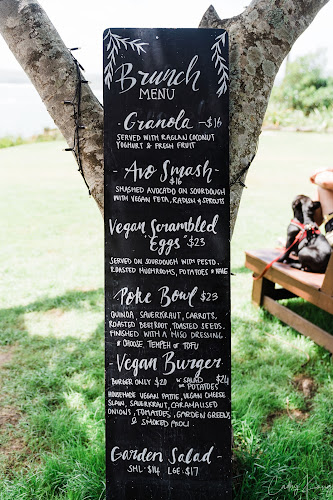 Brunch
MENU
Granola - $16
SERVED WITH RAGLAN COCONUT
YOGHURT & FRESH FRUIT
Avo Smash -
$16
SMASHED AVOCADO ON SOURDOUGH
WITH VEGAN FETA, RADISH & SPROUTS
Vegan Scrambled
"Eggs" $23
SERVED ON SOURDOUGH WITH PESTO,
ROASTED MUSHROOMS, POTATOES & KALE
Poke Bowl $23
QUINOA, SAUERKRAUT, CARROTS,
ROASTED BEETROOT, TOASTED SEEDS,
FINISHED WITH A MISO DRESSING
* CHOOSE, TEMPEH OR TOFU
- Vegan Burger -
BURGER ONLY $20 W SALAD OR POTATOES $24
HOUSEMADE VEGAN PATTIE, VEGAN CHEESE
SLAW, SAUERKRAUT, CARAMALISED
ONIONS, TOMATOES, GARDEN GREENS
& SMOKED AIOLI
Garden Salad -
SML- $14 LGE- $17